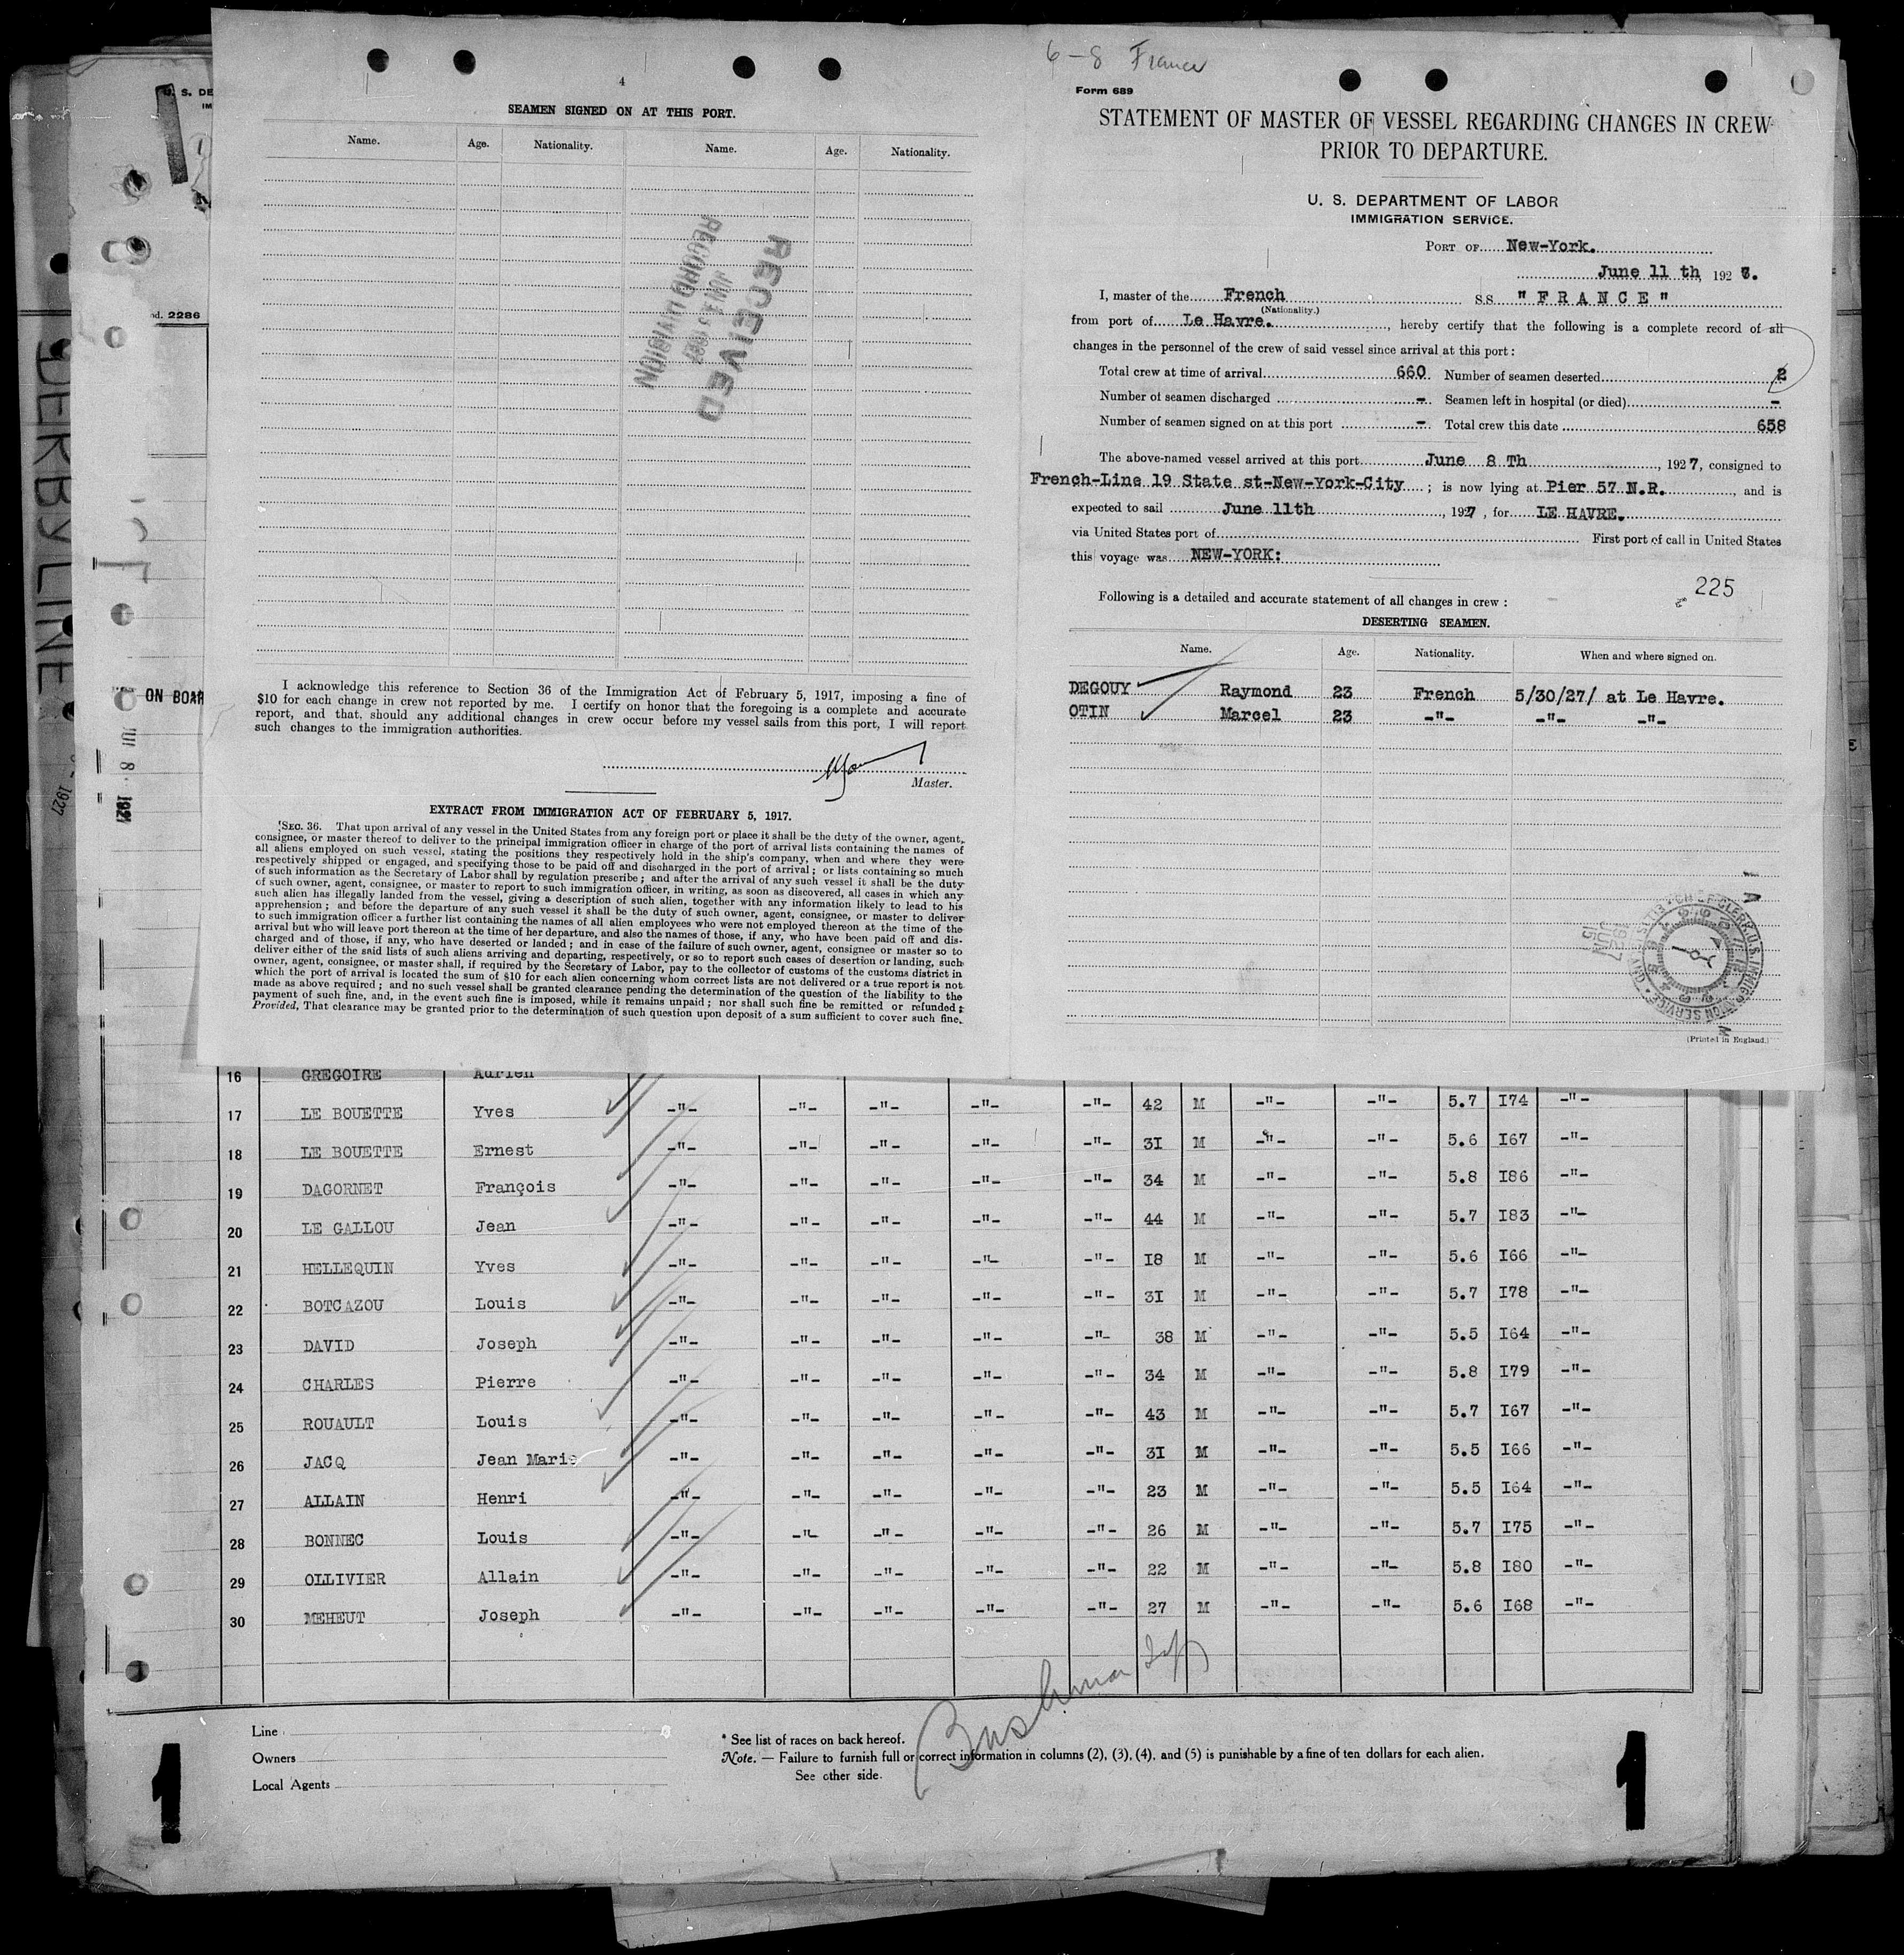 4
SEAMEN SIGNED ON AT THIS PORT.
Name. Age. Nationality. Name. Age. Nationality.
RECEIVED
RECORD DIVISION
I acknowledge this reference to Section 36 of the Immigration Act of February 5, 1917, imposing a fine of
$10 for each change in crew not reported by me. I certify on honor that the foregoing is a complete and accurate
report, and that, should any additional changes in crew occur before my vessel sails from this port, I will report
such changes to the immigration authorities.
Master.
EXTRACT FROM IMMIGRATION ACT OF FEBRUARY 5, 1917.
SEC. 36. That upon arrival of any vessel in the United States from any foreign port or place it shall be the duty of the owner, agent,
consignee, or master thereof to deliver to the principal immigration officer in charge of the port of arrival lists containing the names of
all aliens employed on such vessel, stating the positions they respectively hold in the ship's company, when and where they were
respectively shipped or engaged, and specifying those to be paid off and discharged in the port of arrival; or lists containing so much
of such information as the Secretary of Labor shall by regulation prescribe; and after the arrival of any such vessel it shall be the duty
of such owner, agent, consignee, or master to report to such immigration officer, in writing, as soon as discovered, all cases in which any
such alien has illegally landed from the vessel, giving a description of such alien, together with any information likely to lead to his
apprehension; and before the departure of any such vessel it shall be the duty of such owner, agent, consignee, or master to deliver
to such immigration officer a further list containing the names of all alien employees who were not employed thereon at the time of the
arrival but who will leave port thereon at the time of her departure, and also the names of those, if any, who have been paid off and dis-
charged and of those, if any, who have deserted or landed; and in case of the failure of such owner, agent, consignee or master so to
deliver either of the said lists of such aliens arriving and departing, respectively, or so to report such cases of desertion or landing, such
owner, agent, consignee, or master shall, if required by the Secretary of Labor, pay to the collector of customs of the customs district in
which the port of arrival is located the sum of $10 for each alien concerning whom correct lists are not delivered or a true report is not
made as above required; and no such vessel shall be granted clearance pending the determination of the question of the liability to the
payment of such fine, and, in the event such fine is imposed, while it remains unpaid; nor shall such fine be remitted or refunded;
Provided, That clearance may be granted prior to the determination of such question upon deposit of a sum sufficient to cover such fine.
6-8 France
Form 689
STATEMENT OF MASTER OF VESSEL REGARDING CHANGES IN CREW
PRIOR TO DEPARTURE.
U. S. DEPARTMENT OF LABOR
IMMIGRATION SERVICE.
PORT OF New-York.
June 11 th, 1927.
I, master of the French S.S. "FRANCE"
(Nationality.)
from port of Le Havre., hereby certify that the following is a complete record of all
changes in the personnel of the crew of said vessel since arrival at this port:
Total crew at time of arrival 660 Number of seamen deserted 2
Number of seamen discharged - Seamen left in hospital (or died) -
Number of seamen signed on at this port - Total crew this date 658
The above-named vessel arrived at this port June 8 Th, 1927, consigned to
French-Line 19 State st-New-York-City; is now lying at Pier 57 N.R., and is
expected to sail June 11th, 1927, for LE HAVRE.
via United States port of First port of call in United States
this voyage was NEW-YORK:
225
Following is a detailed and accurate statement of all changes in crew:
DESERTING SEAMEN.
Name. Age. Nationality. When and where signed on.
DEGOUY Raymond 23 French 5/30/27/ at Le Havre.
OTIN Marcel 23 -"- -"- -"-
(Printed in England.)
U. S. DE
IM
od. 2286
DERBYLINE
ON BOAR
8 1927
1927
16 GREGOIRE Adrien
17 LE BOUETTE Yves -"- -"- -"- -"- -"- 42 M -"- -"- 5.7 I74 -"-
18 LE BOUETTE Ernest -"- -"- -"- -"- -"- 3I M -"- -"- 5.6 I67 -"-
19 DAGORNET François -"- -"- -"- -"- -"- 34 M -"- -"- 5.8 I86 -"-
20 LE GALLOU Jean -"- -"- -"- -"- -"- 44 M -"- -"- 5.7 I83 -"-
21 HELLEQUIN Yves -"- -"- -"- -"- -"- I8 M -"- -"- 5.6 I66 -"-
22 BOTCAZOU Louis -"- -"- -"- -"- -"- 3I M -"- -"- 5.7 I78 -"-
23 DAVID Joseph -"- -"- -"- -"- -"- 38 M -"- -"- 5.5 I64 -"-
24 CHARLES Pierre -"- -"- -"- -"- -"- 34 M -"- -"- 5.8 I79 -"-
25 ROUAULT Louis -"- -"- -"- -"- -"- 43 M -"- -"- 5.7 I67 -"-
26 JACQ Jean Marie -"- -"- -"- -"- -"- 3I M -"- -"- 5.5 I66 -"-
27 ALLAIN Henri -"- -"- -"- -"- -"- 23 M -"- -"- 5.5 I64 -"-
28 BONNEC Louis -"- -"- -"- -"- -"- 26 M -"- -"- 5.7 I75 -"-
29 OLLIVIER Allain -"- -"- -"- -"- -"- 22 M -"- -"- 5.8 I80 -"-
30 MEHEUT Joseph -"- -"- -"- -"- -"- 27 M -"- -"- 5.6 I68 -"-
Bushman
Line
Owners
Local Agents
* See list of races on back hereof.
Note. — Failure to furnish full or correct information in columns (2), (3), (4), and (5) is punishable by a fine of ten dollars for each alien.
See other side.
1 1